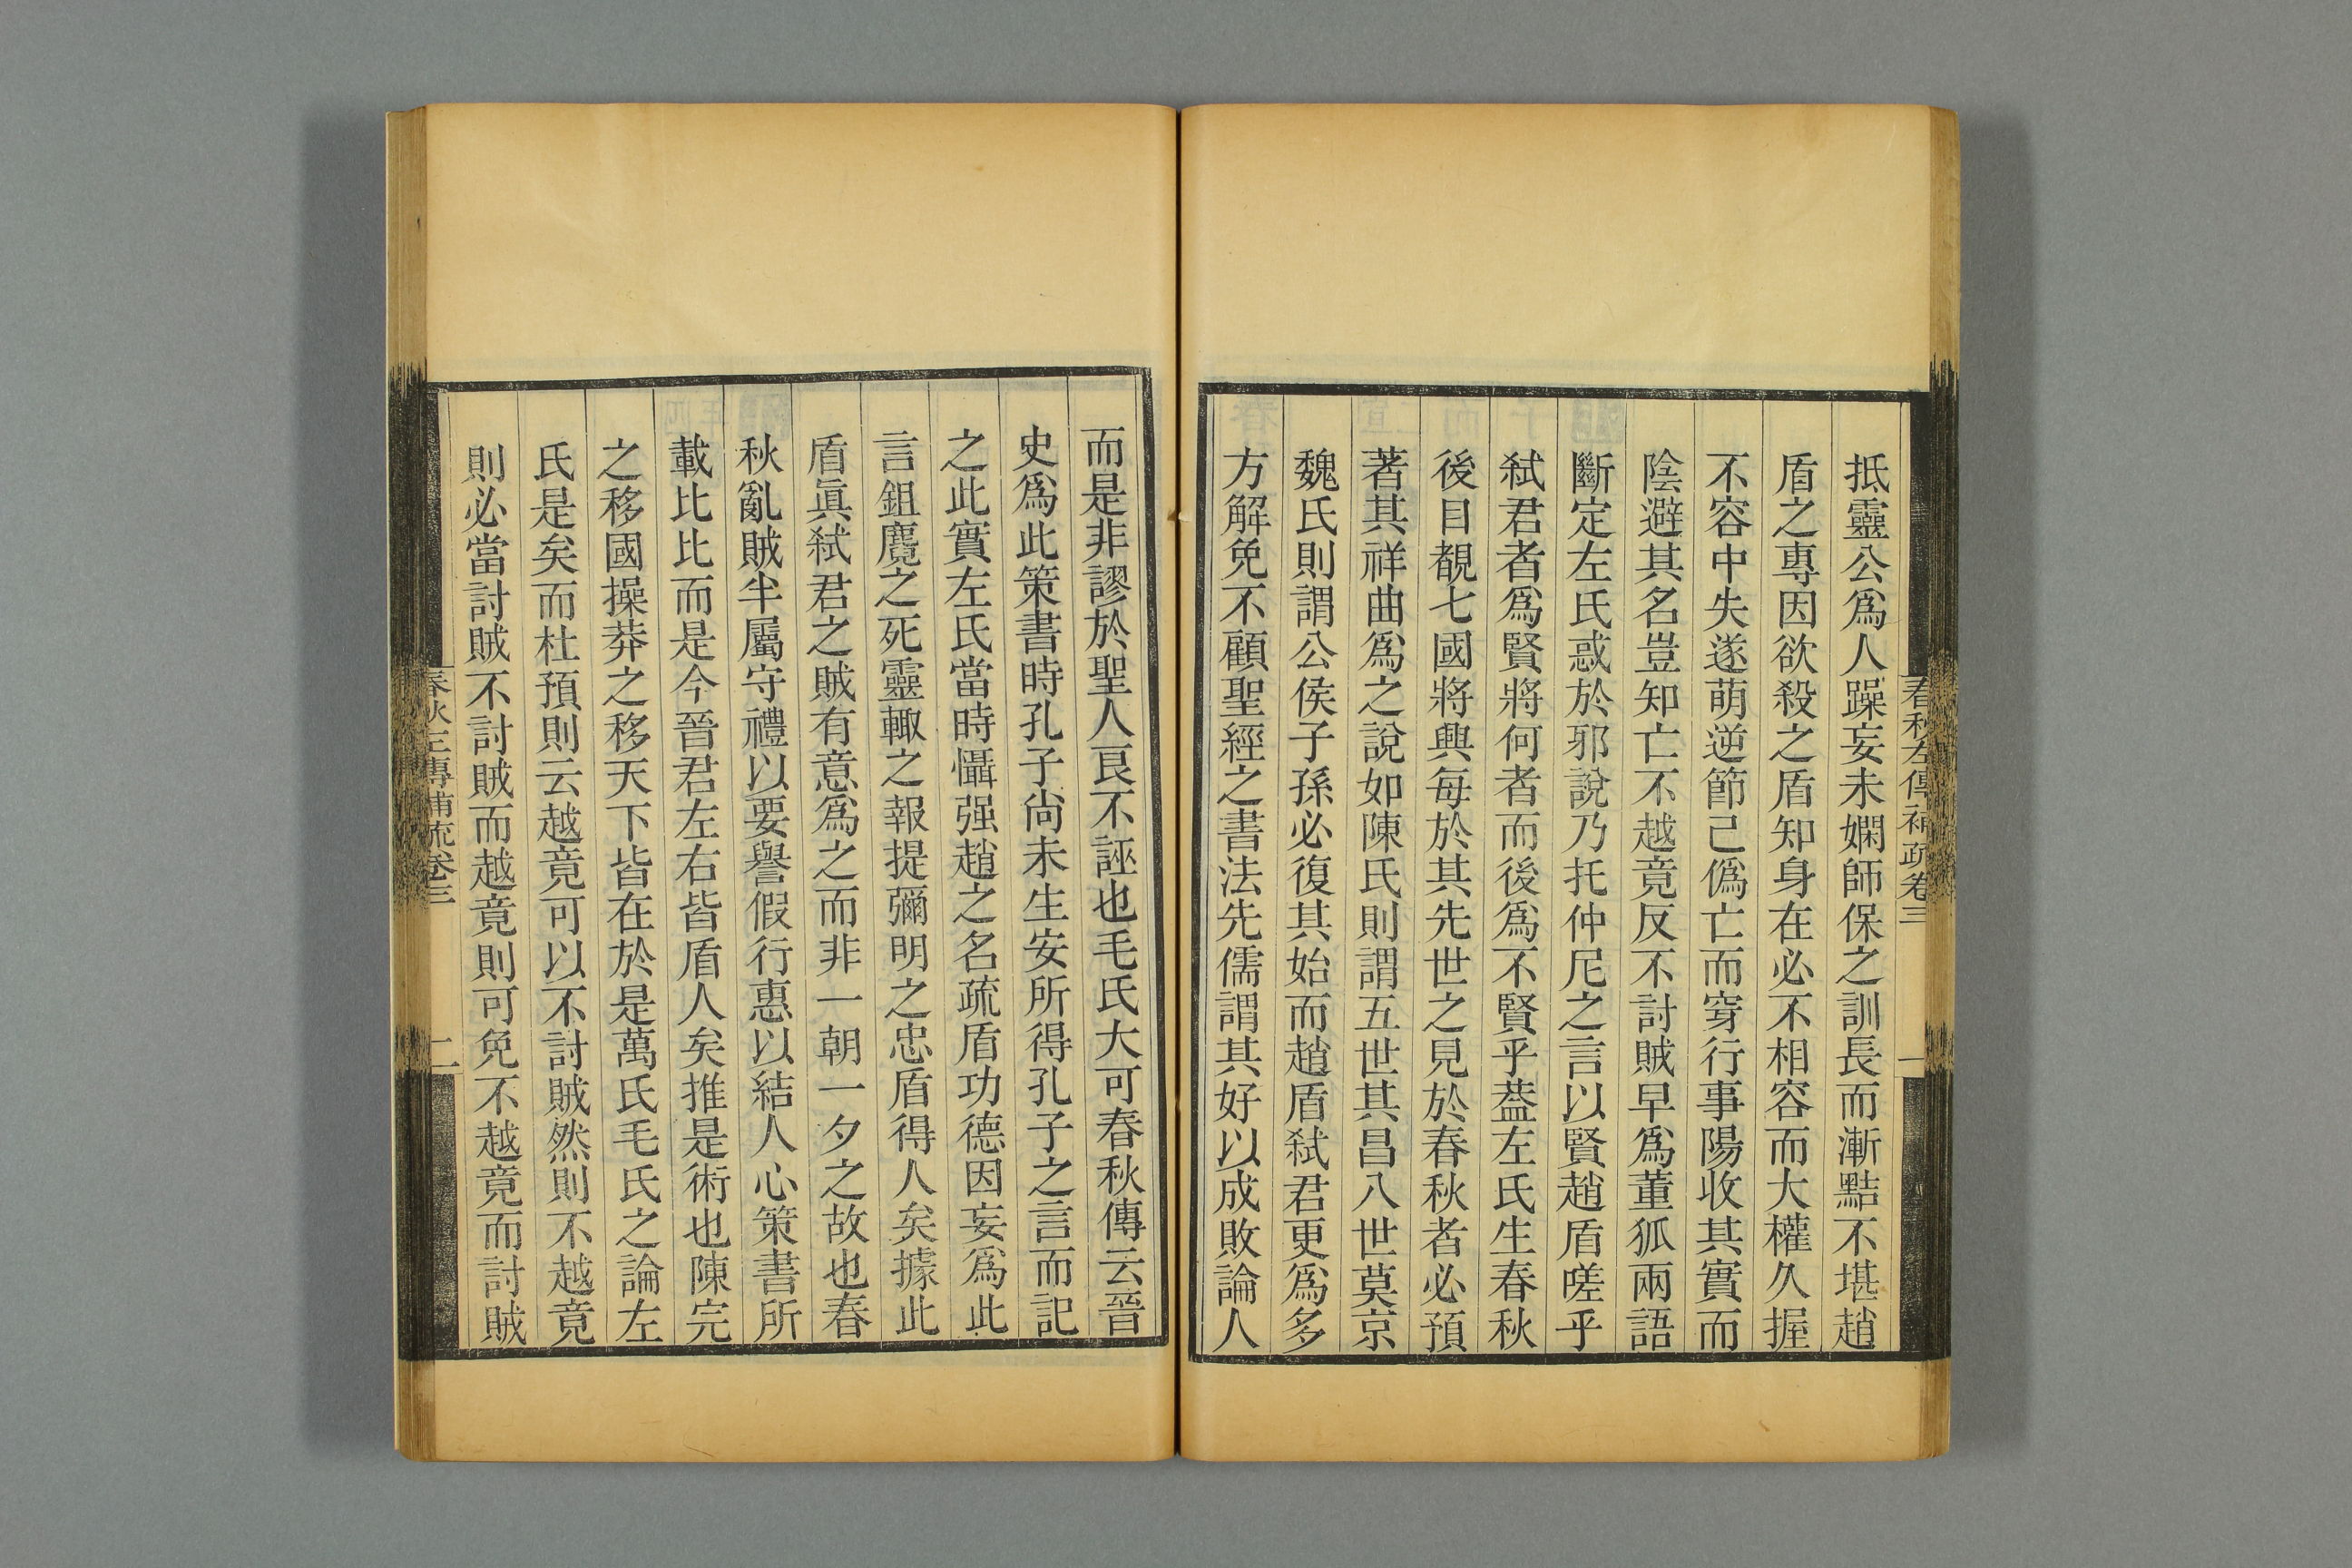 春秋左傳補疏卷三
一
抵靈公爲人躁妄未嫻師保之訓長而漸黠不堪趙
盾之專因欲殺之盾知身在必不相容而大權久握
不容中失遂萌逆節己僞亡而穿行事陽收其實而
陰避其名豈知亡不越竟反不討賊早爲董狐兩語
斷定左氏惑於邪說乃托仲尼之言以賢趙盾嗟乎
弒君者爲賢將何者而後爲不賢乎葢左氏生春秋
後目覩七國將興每於其先世之見於春秋者必預
著其祥曲爲之說如陳氏則謂五世其昌八世莫京
魏氏則謂公侯子孫必復其始而趙盾弒君更爲多
方解免不顧聖經之書法先儒謂其好以成敗論人
而是非謬於聖人良不誣也毛氏大可春秋傳云晉
史爲此策書時孔子尙未生安所得孔子之言而記
之此實左氏當時懾强趙之名疏盾功德因妄爲此
言鉏麑之死靈輙之報提彌明之忠盾得人矣據此
盾眞弒君之賊有意爲之而非一朝一夕之故也春
秋亂賊半屬守禮以要譽假行惠以結人心策書所
載比比而是今晉君左右皆盾人矣推是術也陳完
之移國操莽之移天下皆在於是萬氏毛氏之論左
氏是矣而杜預則云越竟可以不討賊然則不越竟
則必當討賊不討賊而越竟則可免不越竟而討賊
春秋三傳補疏卷三
二